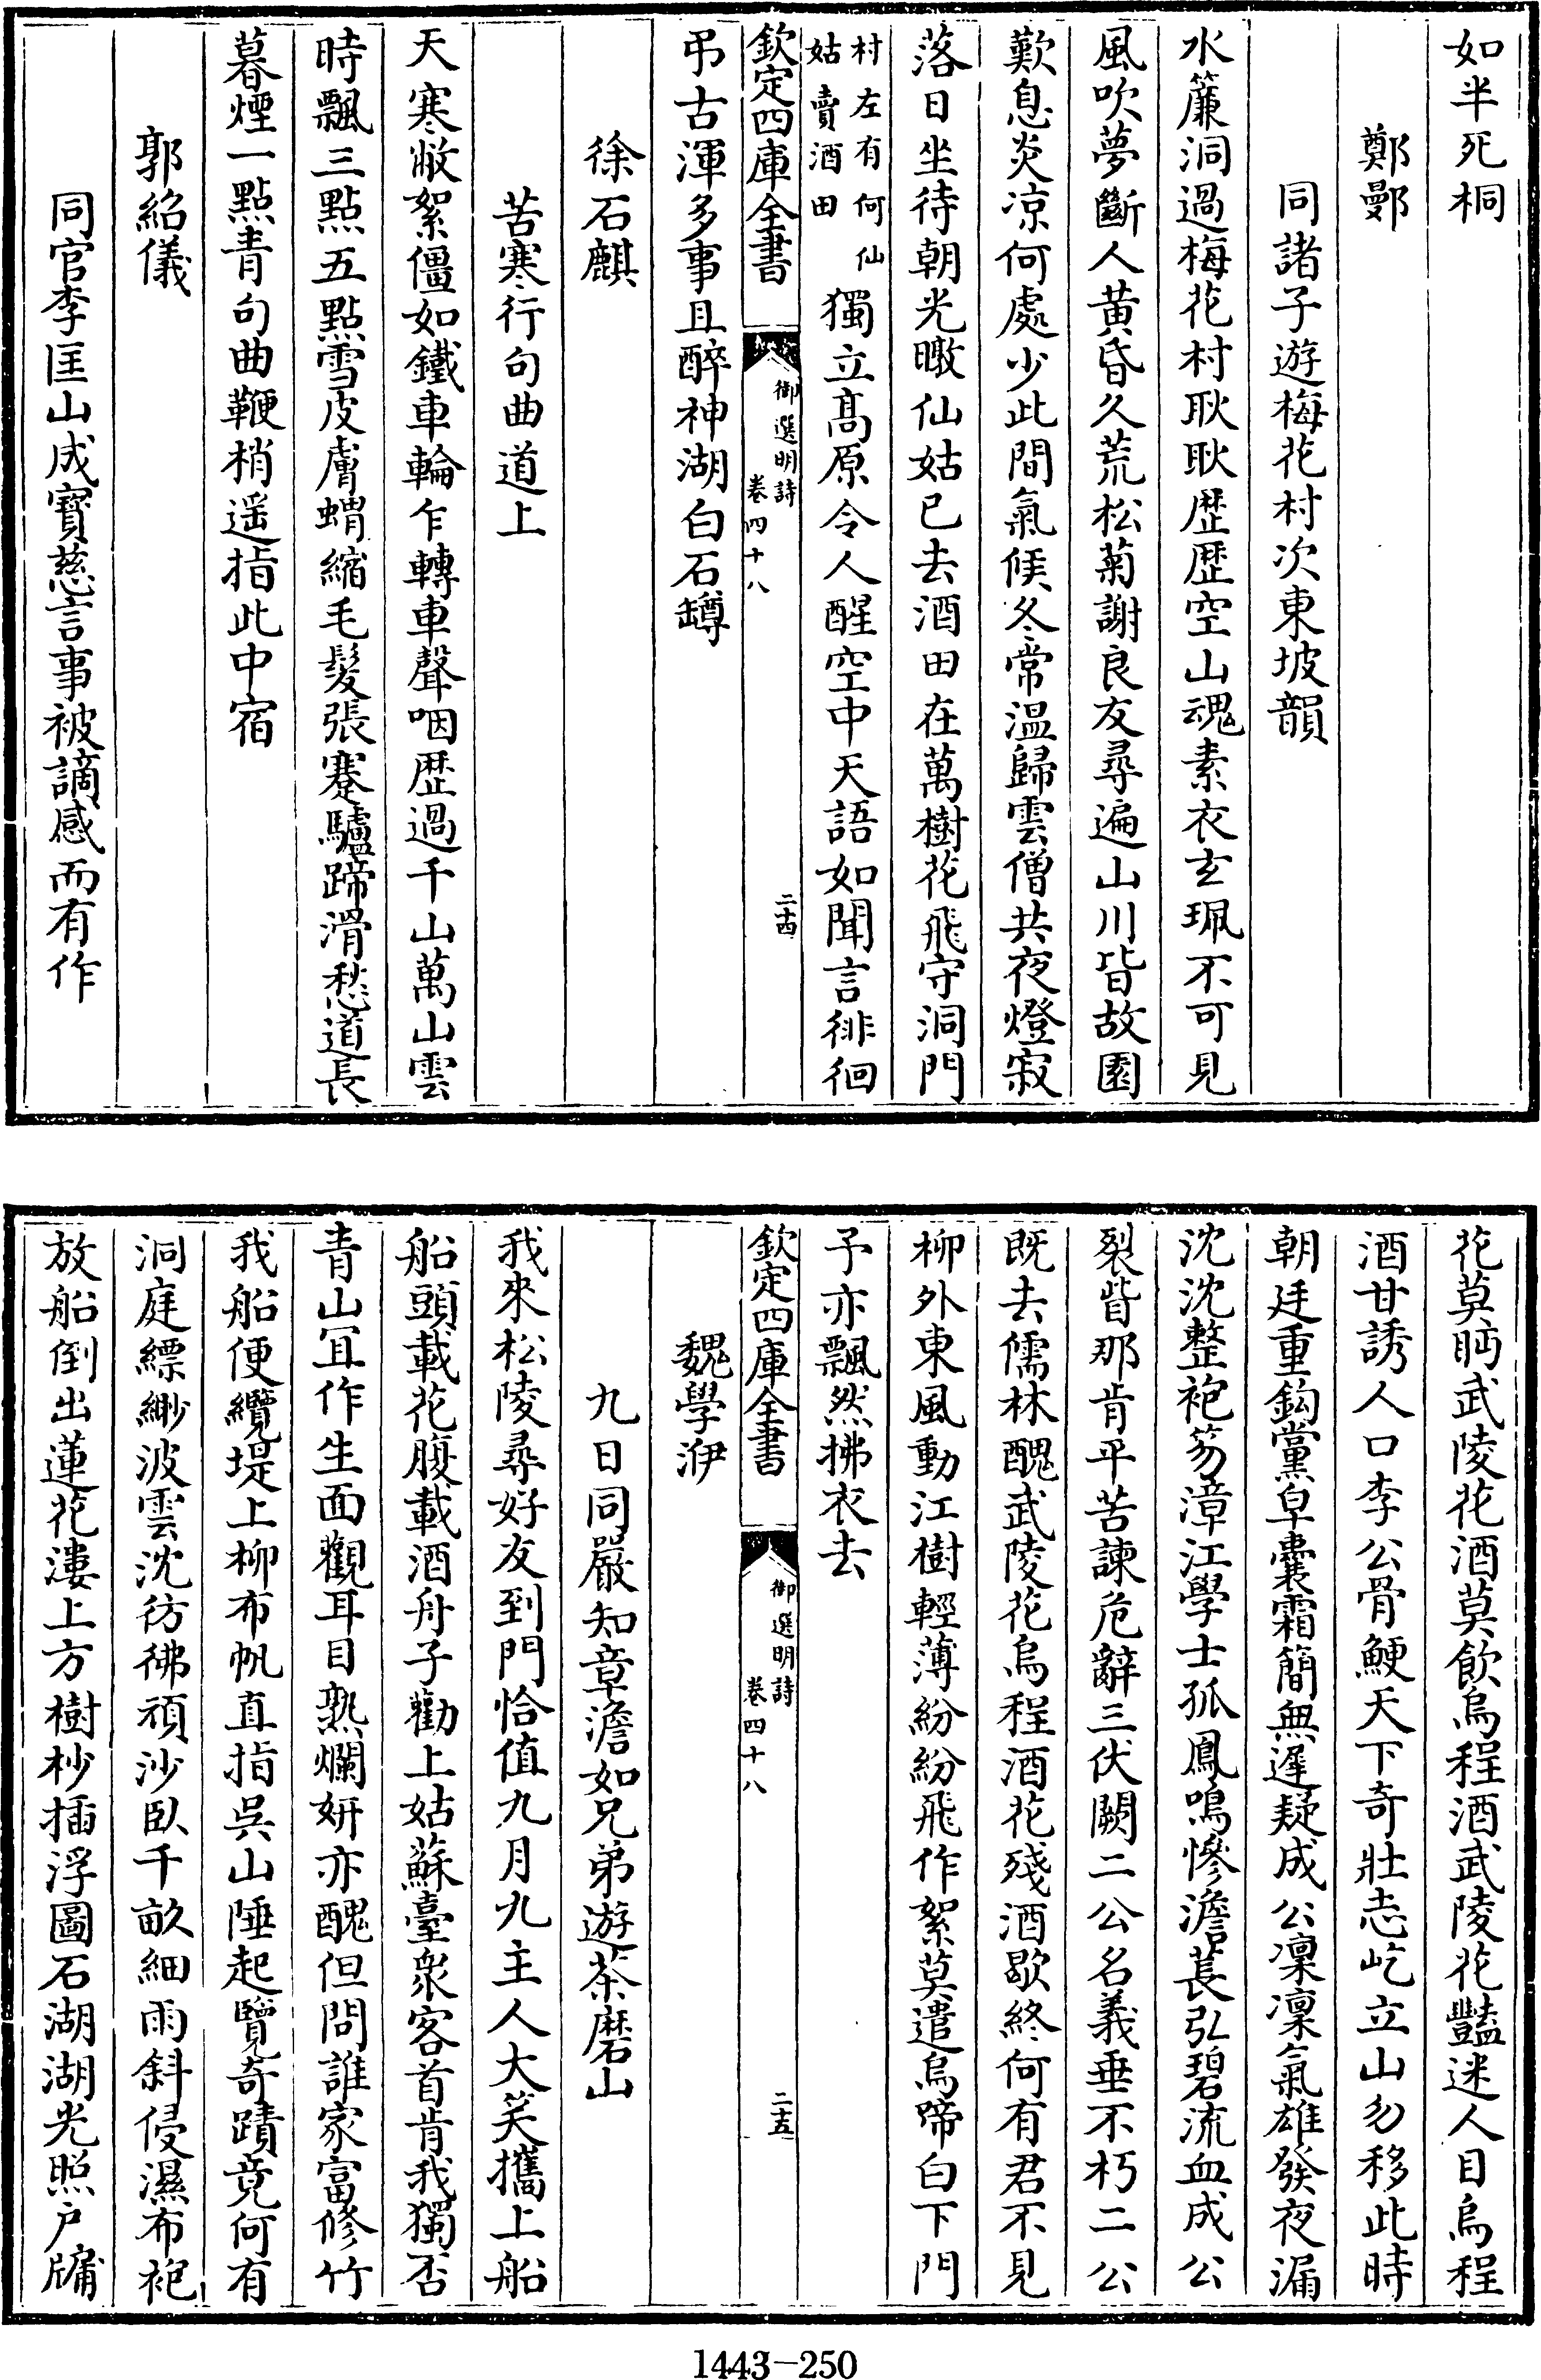 如半死桐
鄭鄤
同諸子遊梅花村次東坡韻
水簾洞過梅花村耿耿歴歴空山魂素衣玄珮不可見
風吹夢斷人黄昏久荒松菊謝良友尋遍山川皆故園
歎息炎凉何處少此間氣候冬常温歸雲僧共夜燈寂
落日坐待朝光暾仙姑已去酒田在萬樹花飛守洞門
村左有何仙
姑賣酒田
獨立髙原令人醒空中天語如聞言徘徊
欽定四庫全書
御選明詩
卷四十八
二十四
弔古渾多事且醉神湖白石罇
徐石麒
苦寒行句曲道上
天寒敝絮僵如鐵車輪乍轉車聲咽歴過千山萬山雲
時飄三點五點雪皮膚蝟縮毛髮張蹇驢蹄滑愁道長
暮煙一點青句曲鞭梢遥指此中宿
郭紹儀
同官李匡山成寶慈言事被謫感而有作
花莫眄武陵花酒莫飲烏程酒武陵花豔迷人目烏程
酒甘誘人口李公骨鯁天下奇壯志屹立山勿移此時
朝廷重鈎黨皁囊霜簡無遲疑成公凜凜氣雄發夜漏
沈沈整袍笏漳江學士孤鳳鳴慘澹萇弘碧流血成公
裂眥那肯平苦諫危辭三伏闕二公名義垂不朽二公
既去儒林醜武陵花烏程酒花殘酒歇終何有君不見
柳外東風動江樹輕薄紛紛飛作絮莫遣烏啼白下門
子亦飄然拂衣去
欽定四庫全書
御選明詩
卷四十八
二十五
魏學洢
九日同嚴知章澹如兄弟遊茶磨山
我來松陵尋好友到門恰值九月九主人大笑攜上船
船頭載花腹載酒舟子勸上姑蘇臺衆客首肯我獨否
青山宜作生面觀耳目熟爛妍亦醜但問誰家富修竹
我船便纜堤上柳布帆直指吳山陲起覽奇蹟竟何有
洞庭縹緲波雲沈彷彿頑沙臥千畝細雨斜侵濕布袍
放船倒出蓮花漊上方樹杪插浮圖石湖湖光照户牖
1443—250